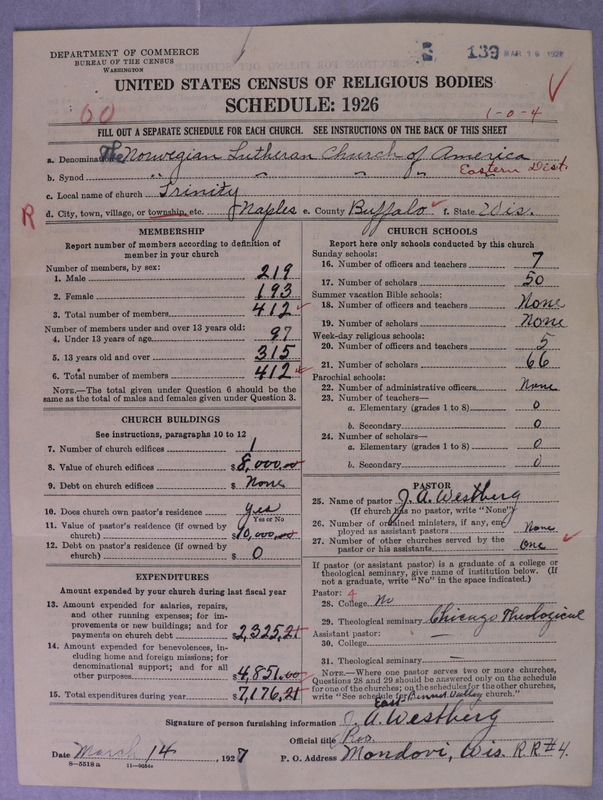 DEPARTMENT OF COMMERCE
BUREAU OF THE CENSUS
WASHINGTON
139 MAR 16 1927
UNITED STATES CENSUS OF RELIGIOUS BODIES
SCHEDULE: 1926
60
1-0-4
FILL OUT A SEPARATE SCHEDULE FOR EACH CHURCH. SEE INSTRUCTIONS ON THE BACK OF THIS SHEET
a. Denomination The Norwegian Lutheran Church of America
b. Synod " " " " Eastern Dist.
c. Local name of church Trinity
R d. City, town, village, or township, etc. Naples e. County Buffalo f. State Wis.
MEMBERSHIP
Report number of members according to definition of member in your church
Number of members, by sex:
1. Male 219
2. Female 193
3. Total number of members 412
Number of members under and over 13 years old:
4. Under 13 years of age 97
5. 13 years old and over 315
6. Total number of members 412
NOTE.—The total given under Question 6 should be the same as the total of males and females given under Question 3.
CHURCH BUILDINGS
See instructions, paragraphs 10 to 12
7. Number of church edifices 1
8. Value of church edifices $8,000.00
9. Debt on church edifices $ None
10. Does church own pastor's residence yes
Yes or No
11. Value of pastor's residence (if owned by church) $10,000.00
12. Debt on pastor's residence (if owned by church) $ 0
EXPENDITURES
Amount expended by your church during last fiscal year
13. Amount expended for salaries, repairs, and other running expenses; for improvements or new buildings; and for payments on church debt $2,325.21
14. Amount expended for benevolences, including home and foreign missions; for denominational support; and for all other purposes $4,851.00
15. Total expenditures during year $7,176.21
CHURCH SCHOOLS
Report here only schools conducted by this church
Sunday schools:
16. Number of officers and teachers 7
17. Number of scholars 50
Summer vacation Bible schools:
18. Number of officers and teachers None
19. Number of scholars None
Week-day religious schools:
20. Number of officers and teachers 5
21. Number of scholars 66
Parochial schools:
22. Number of administrative officers None
23. Number of teachers—
a. Elementary (grades 1 to 8) 0
b. Secondary 0
24. Number of scholars—
a. Elementary (grades 1 to 8) 0
b. Secondary 0
PASTOR
25. Name of pastor J. A. Westberg
(If church has no pastor, write "None")
26. Number of ordained ministers, if any, employed as assistant pastors None
27. Number of other churches served by the pastor or his assistants One
If pastor (or assistant pastor) is a graduate of a college or theological seminary, give name of institution below. (If not a graduate, write "No" in the space indicated.)
Pastor: 4
28. College No
29. Theological seminary Chicago Theological
Assistant pastor:
30. College —
31. Theological seminary —
NOTE.—Where one pastor serves two or more churches, Questions 28 and 29 should be answered only on the schedule for one of the churches; on the schedules for the other churches, write "See schedule for East Bennet Valley church."
Signature of person furnishing information J. A. Westberg
Official title Rev.
Date March 14 1927 P. O. Address Mondovi, Wis. R.R. #4.
8-5518 a